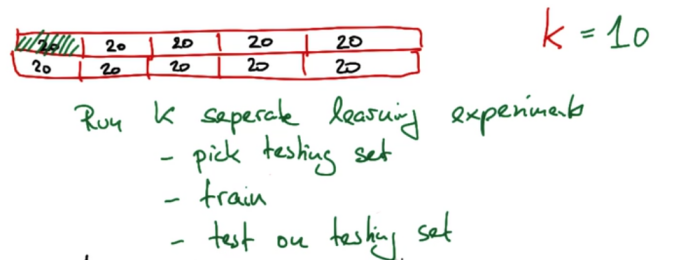 20 20 20 20 20
k = 10
20 20 20 20 20
Run k seperate learning experiments
- pick testing set
- train
- test on testing set